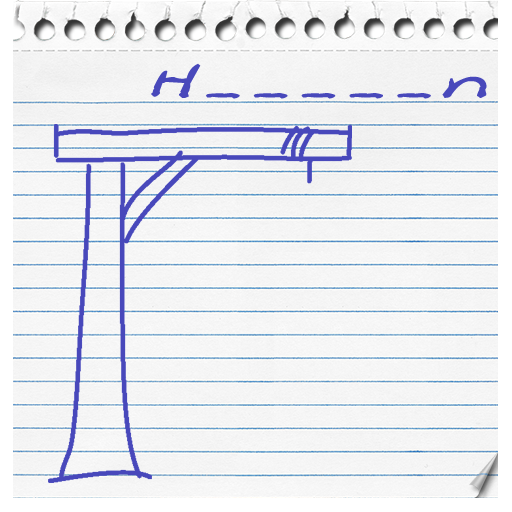 H _ _ _ _ _ n